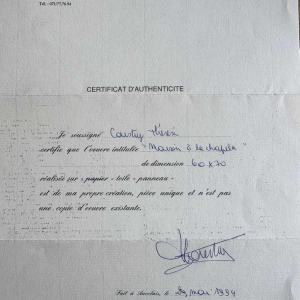 Tél.: 071/77.76.94
CERTIFICAT D'AUTHENTICITE
Je soussigné
certifie que l'œuvre intitulée "Maison à la chapelle"
de dimension 60x70
réalisée sur - papier - toile - panneau -
est de ma propre création, pièce unique et n'est pas
une copie d'œuvre existante.
Fait à Auvelais, le 29 mai 1994